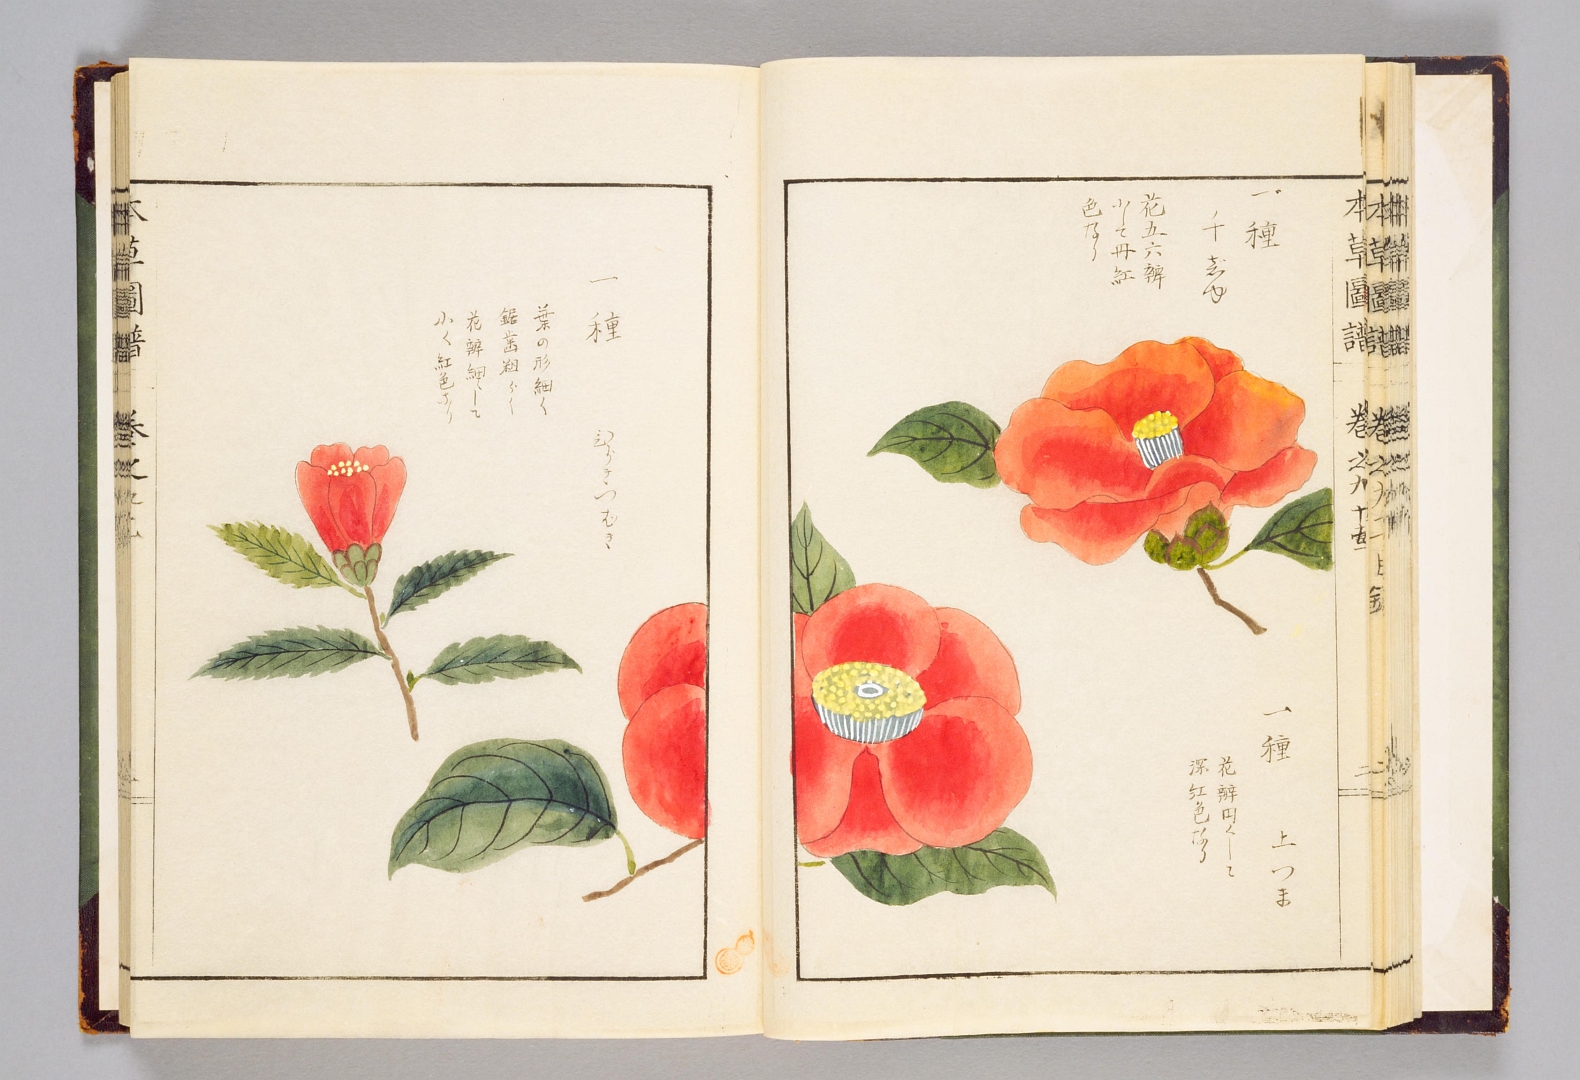 本草圖譜 巻之九十五
一種
花五六瓣
小して丹紅
色なり
一種 上つま
花瓣円くして
深紅色なり
一種
葉の形細く
鋸歯粗く
花瓣細くして
小く紅色なり
本草圖譜